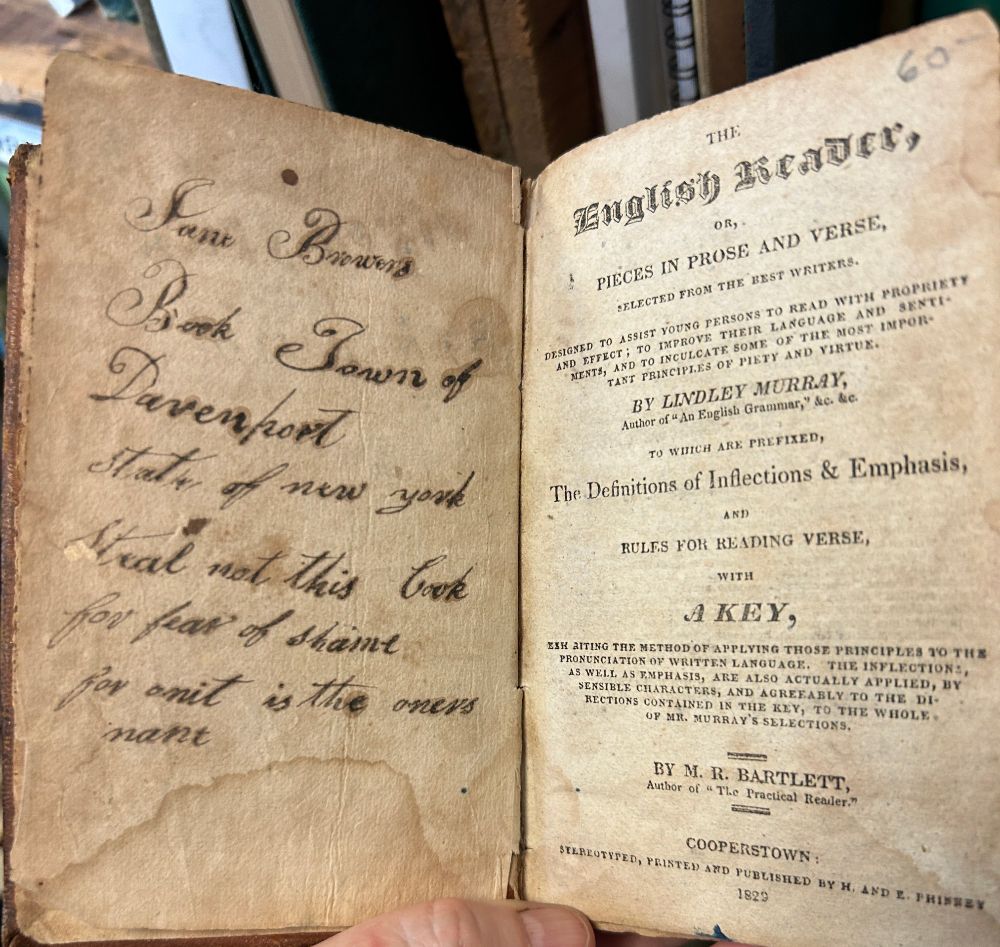 Jane Browers
Book Town of
Davenport
State of new york
Steal not this book
for fear of shame
for onit is the oners
name
60-
THE
English Reader,
OR,
PIECES IN PROSE AND VERSE,
SELECTED FROM THE BEST WRITERS.
DESIGNED TO ASSIST YOUNG PERSONS TO READ WITH PROPRIETY
AND EFFECT; TO IMPROVE THEIR LANGUAGE AND SENTI-
MENTS, AND TO INCULCATE SOME OF THE MOST IMPOR-
TANT PRINCIPLES OF PIETY AND VIRTUE.
BY LINDLEY MURRAY,
Author of "An English Grammar," &c. &c.
TO WHICH ARE PREFIXED,
The Definitions of Inflections & Emphasis,
AND
RULES FOR READING VERSE,
WITH
A KEY,
EXH BITING THE METHOD OF APPLYING THOSE PRINCIPLES TO THE
PRONUNCIATION OF WRITTEN LANGUAGE. THE INFLECTIONS,
AS WELL AS EMPHASIS, ARE ALSO ACTUALLY APPLIED, BY
SENSIBLE CHARACTERS, AND AGREEABLY TO THE DI-
RECTIONS CONTAINED IN THE KEY, TO THE WHOLE
OF MR. MURRAY'S SELECTIONS.
BY M. R. BARTLETT,
Author of "The Practical Reader."
COOPERSTOWN:
STEREOTYPED, PRINTED AND PUBLISHED BY H. AND E. PHINNEY
1829